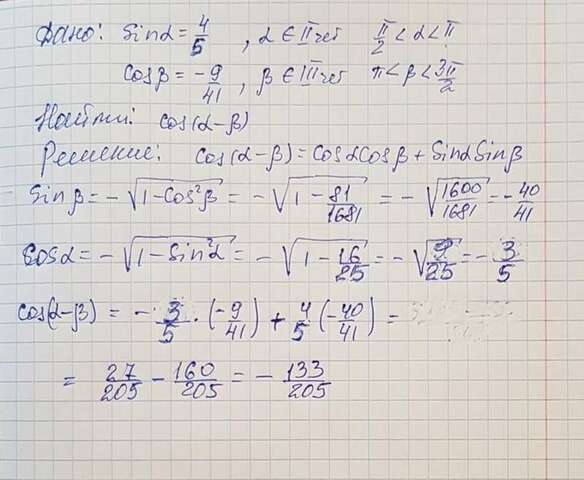 Дано: Sinα = 4/5 , α ∈ II чет π/2 < α < π
Cosβ = -9/41 , β ∈ III чет π < β < 3π/2
Найти: cos(α-β)
Решение: cos(α-β) = cosαcosβ + SinαSinβ
Sinβ = -√(1-cos²β) = -√(1 - 81/1681) = -√(1600/1681) = -40/41
Cosα = -√(1-Sin²α) = -√(1 - 16/25) = -√(9/25) = -3/5
cos(α-β) = -3/5 · (-9/41) + 4/5 (-40/41) =
= 27/205 - 160/205 = -133/205